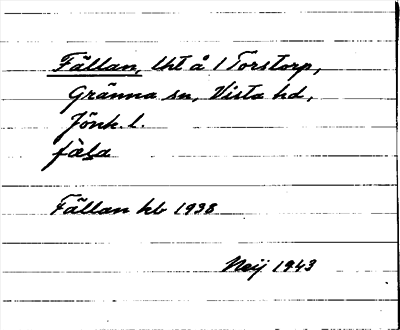 Fällan, lht å 1 Torstorp,
Gränna sn, Vista hd,
Jönk. l.
fàla
Fällan kb 1938
Neij 1943